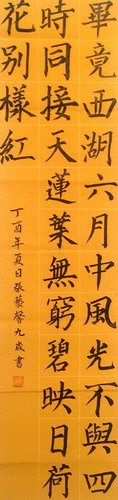 畢竟西湖六月中風光不與四
時同接天蓮葉無窮碧映日荷
花別樣紅
丁酉年夏日張藝馨九歲書